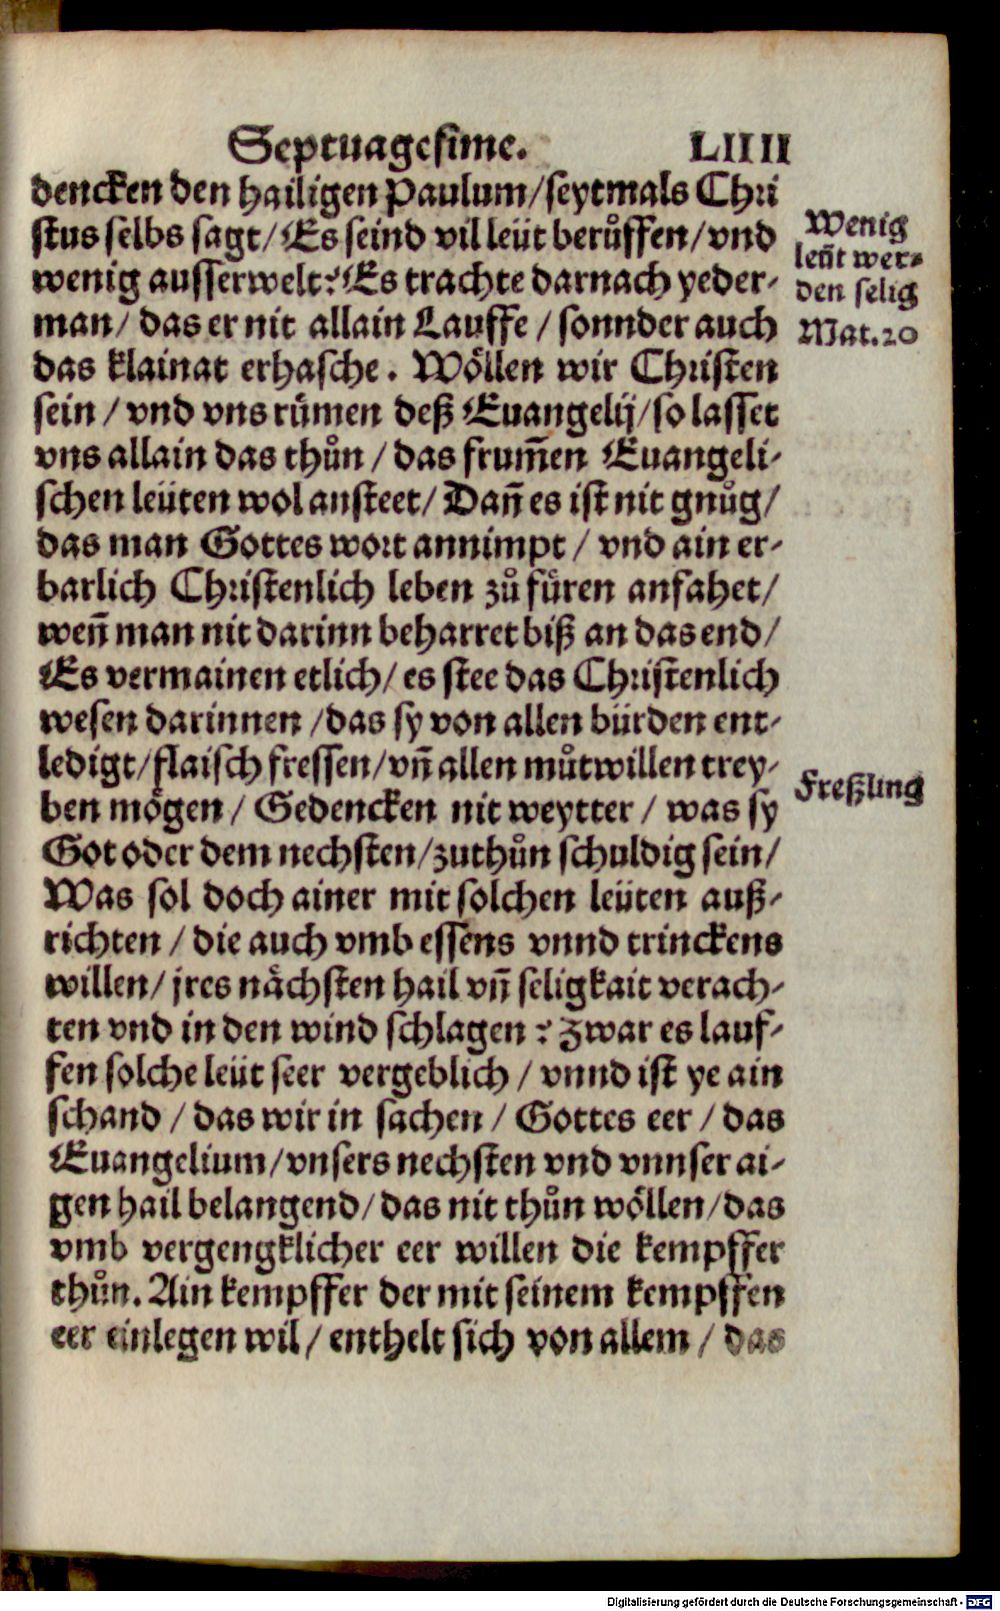 Septuagesime. LIIII
dencken den hailigen Paulum/seytmals Chri
stus selbs sagt/Es seind vil leüt berůffen/vnd
wenig ausserwelt? Es trachte darnach yeder-
man/das er nit allain Lauffe/sonnder auch
das klainat erhasche. Wöllen wir Christen
sein/vnd vns rümen deß Euangelij/so lasset
vns allain das thůn/das frum̃en Euangeli-
schen leüten wol ansteet/Dañ es ist nit gnůg/
das man Gottes wort annimpt/vnd ain er-
barlich Christenlich leben zů füren anfahet/
weñ man nit darinn beharret biß an das end/
Es vermainen etlich/es stee das Christenlich
wesen darinnen/das sy von allen bürden ent-
ledigt/flaisch fressen/vñ allen můtwillen trey-
ben mögen/Gedencken nit weytter/was sy
Got oder dem nechsten/zuthůn schuldig sein/
Was sol doch ainer mit solchen leüten auß-
richten/die auch vmb essens vnnd trinckens
willen/jres nächsten hail vñ seligkait verach-
ten vnd in den wind schlagen? Zwar es lauf-
fen solche leüt seer vergeblich/vnnd ist ye ain
schand/das wir in sachen/Gottes eer/das
Euangelium/vnsers nechsten vnd vnnser ai-
gen hail belangend/das nit thůn wöllen/das
vmb vergengklicher eer willen die kempffer
thůn. Ain kempffer der mit seinem kempffen
eer einlegen wil/enthelt sich von allem/das
Wenig
leüt wer-
den selig
Mat. 20
Freßling
Digitalisierung gefördert durch die Deutsche Forschungsgemeinschaft - DFG